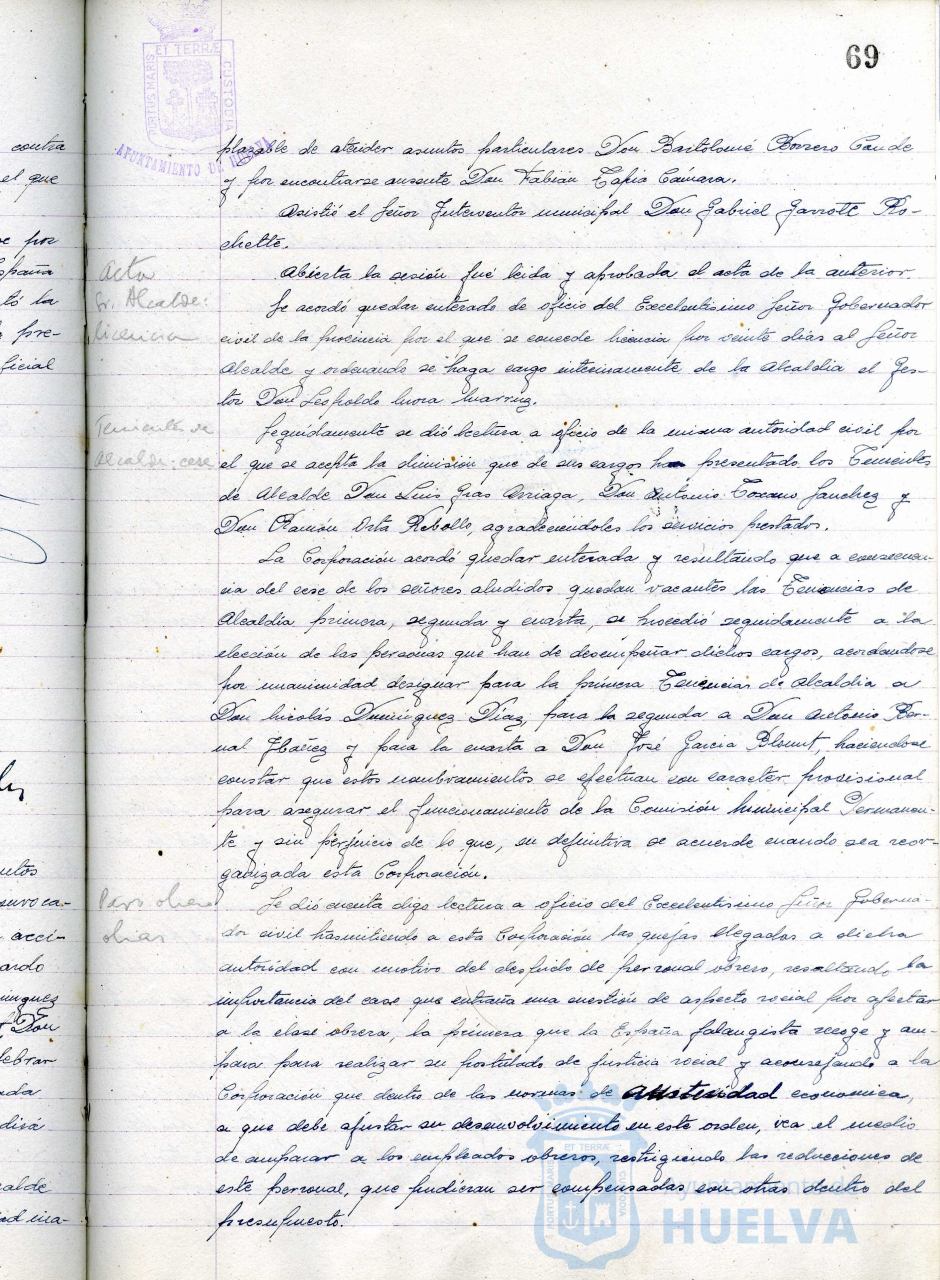 69
PORTUS MARIS ET TERRÆ CUSTODIA
AYUNTAMIENTO DE HUELVA
plazable de atender asuntos particulares Don Bartolomé Borrero Conde
y por encontrarse ausente Don Fabián Tapia Cámara.
Asistió el Señor Interventor municipal Don Gabriel Garrote Ro-
chette.
Acta
Abierta la sesión fué leida y aprobada el acta de la anterior.
Sr. Alcalde:
licencia
Se acordó quedar enterado de oficio del Excelentísimo Señor Gobernador
civil de la provincia por el que se concede licencia por veinte dias al Señor
Alcalde y ordenando se haga cargo interinamente de la Alcaldia el Ges-
tor Don Leopoldo Mora
Tenientes de
Alcalde: cese
Seguidamente se dió lectura a oficio de la misma autoridad civil por
el que se acepta la dimisión que de sus cargos han presentado los Tenientes
de Alcalde Don Luis Gras Arriaga, Don Antonio Toscano Sanchez y
Don Ramón Orta Rebollo, agradeciendoles los servicios prestados.
La Corporación acordó quedar enterada y resultando que a consecuen-
cia del cese de los señores aludidos quedan vacantes las Tenencias de
Alcaldía primera, segunda y cuarta, se procedió seguidamente a la
elección de las personas que han de desempeñar dichos cargos, acordandose
por unanimidad designar para la primera Tenencias de Alcaldia a
Don Nicolás Dominguez Díaz, para la segunda a Don Antonio Ber-
nal Ibañez y para la cuarta a Don José Garcia Blount, haciendose
constar que estos nombramientos se efectuan con caracter provisional
para asegurar el funcionamiento de la Comisión Municipal Permanen-
te y sin perjuicio de lo que, en definitiva se acuerde cuando sea reor-
ganizada esta Corporación.
Paro obrero
obras
Se dió cuenta digo lectura a oficio del Excelentísimo Señor Goberna-
dor civil trasmitiendo a esta Corporación las quejas llegadas a dicha
autoridad con motivo del despido de personal obrero, resaltando la
importancia del case que entraña una cuestión de aspecto social por afectar
a la clase obrera, la primera que la España falangista recoge y am-
para para realizar su postulado de justicia social y aconsejando a la
Corporación que dentro de las normas de austeridad economica,
a que debe ajustar su desenvolvimiento en este orden, vea el medio
de amparar a los empleados obreros, restrigiendo las reducciones de
este personal, que pudieran ser compensadas con otras dentro del
presupuesto.
contra
el que
por
España
tó la
pre-
ficial
juntos
nvoca-
acci-
ardo
inguez
Don
lebrar
nada
dirá
calde
ad ma-
ET TERRÆ
PORTUS MARIS
CUSTODIA
Ayuntamiento de
HUELVA